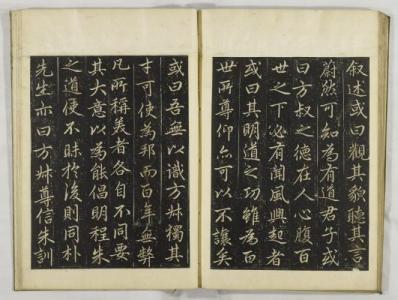 叙述或曰觀其貌聽其言
蔚然可知為有道君子或
曰方叔之德在人心腹百
世之下必有聞風興起者
或曰其明道之功雖為百
世所尊仰亦可以不讓矣
或曰吾無以識方叔獨其
才可使為邦而百年無弊
凡所稱義者各自不同要
其大意以為能倡明程朱
之道使不昧於後則同朴
先生亦曰方叔尊信朱訓